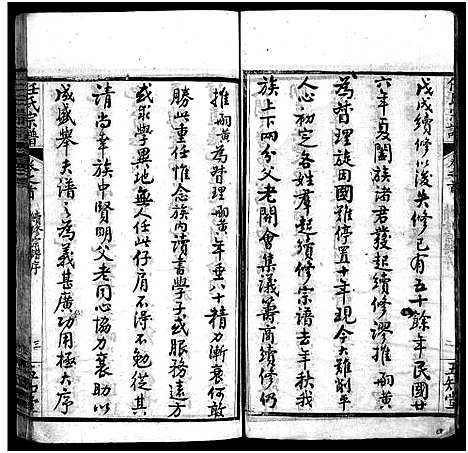 戊戌續修以後失修已有五十餘年民國廿
六年夏閤族諸君發起續修謬推雨黄
為督理旋因國難停置十年現今大難削平
人心初定各姓羣起續修宗譜去年秋我
族上下兩分父老開會集議籌商續修仍
推雨黄為督理雨黄年垂八十精力漸衰何敢
勝此重任惟念族內讀書學子或服務遠方
或求學異地無人任此仔肩不得不勉從其
請尚幸族中賢明父老同心協力襄
成盛舉夫譜之為義甚廣功用極大序
任氏宗譜
卷之首
續修宗譜序
三
五知堂
二
五知堂